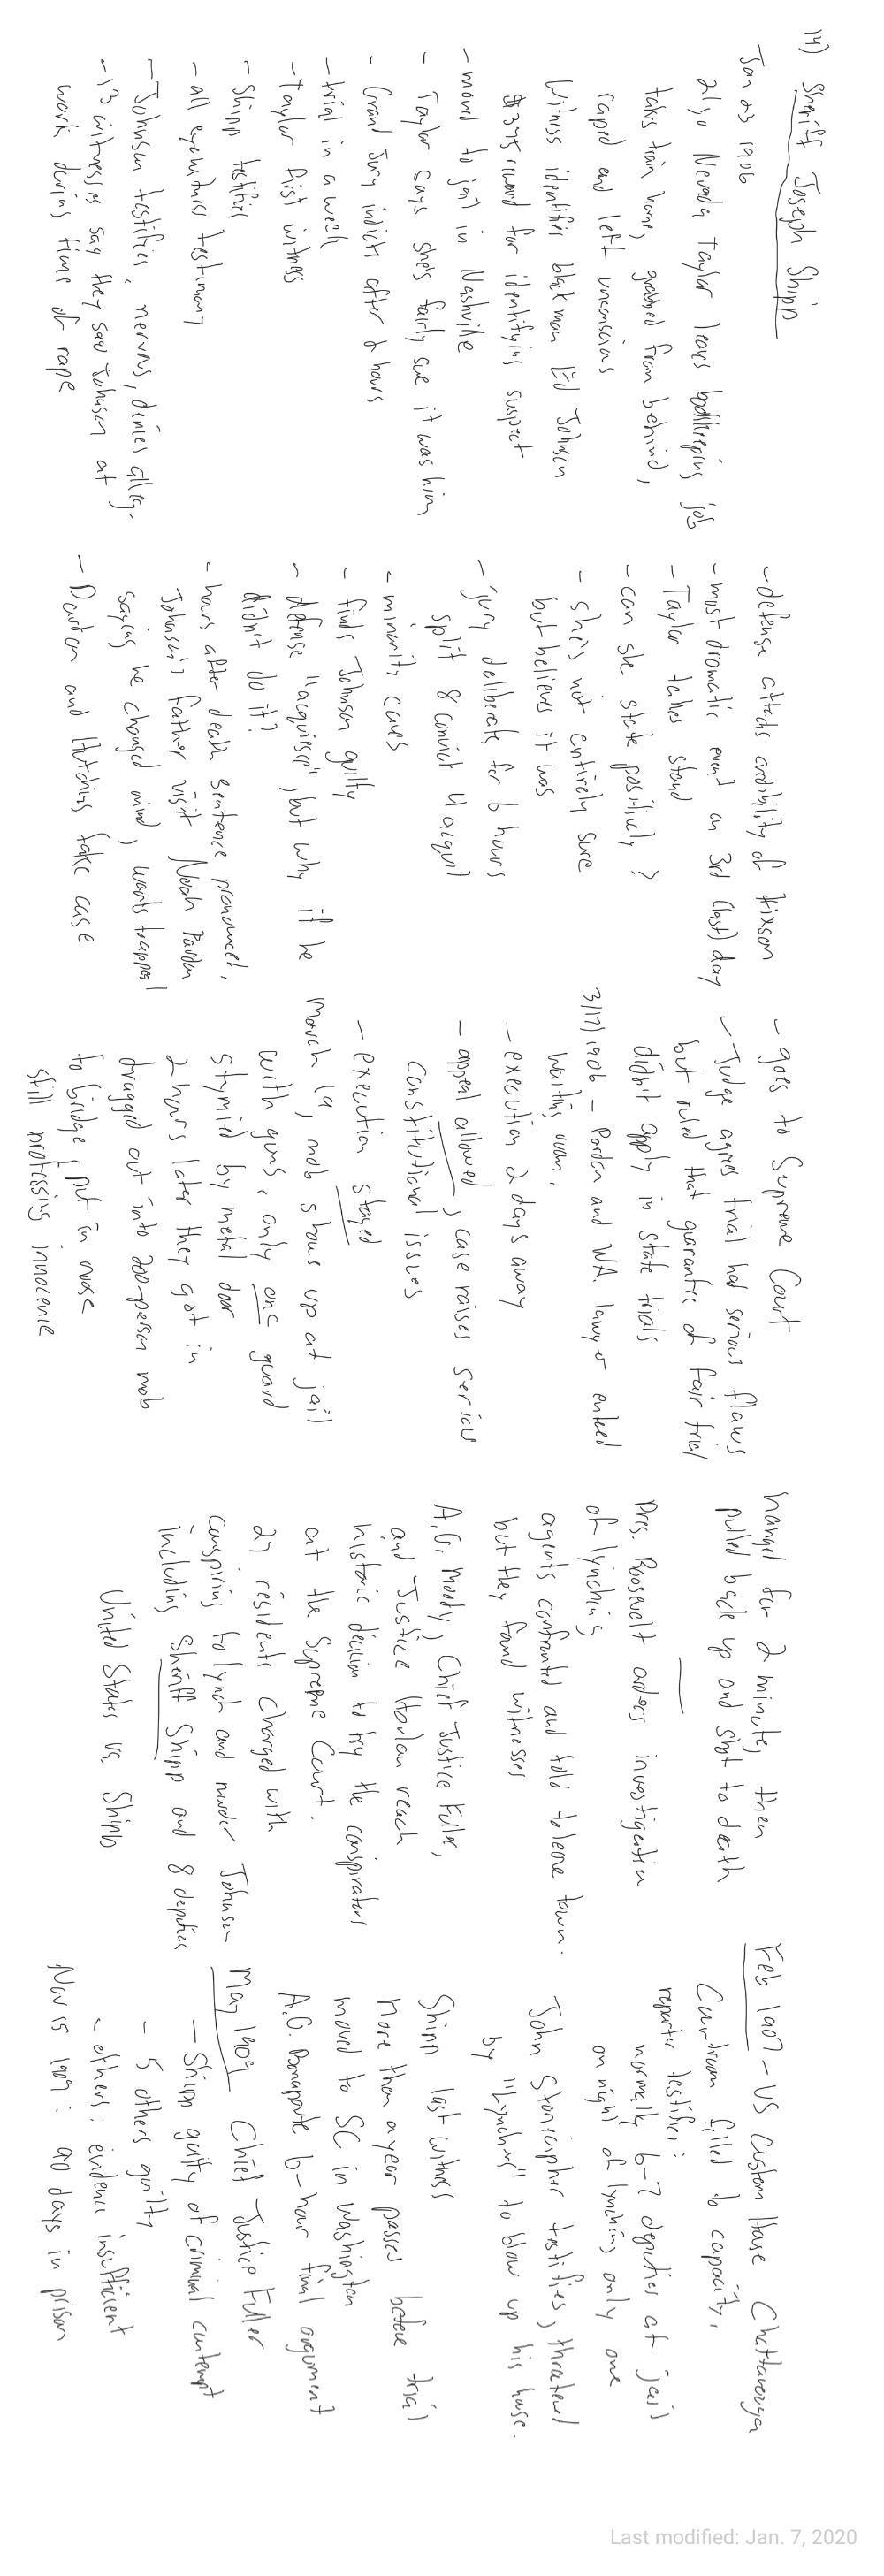 14) Sheriff Joseph Shipp
Jan 23 1906
21 yo Nevada Taylor leaves bookkeeping job
takes train home, grabbed from behind,
raped and left unconscious
Witness identifies black man Ed Johnson
$375 reward for identifying suspect
- moved to jail in Nashville
- Taylor says she's fairly sure it was him
- Grand Jury indicts after 2 hours
- trial in a week
- Taylor first witness
- Shipp testifies
- all eyewitness testimony
- Johnson testifies, nervous, denies alleg.
- 13 witnesses say they saw Johnson at
work during time of rape
- defense attacks credibility of Hixson
- most dramatic event on 3rd (last) day
- Taylor takes stand
- can she state positively?
- she's not entirely sure
but believes it was
- jury deliberates for 6 hours
split 8 convict 4 acquit
- minority caves
- finds Johnson guilty
- defense "acquiesce", but why if he
didn't do it?
- hours after death sentence pronounced,
Johnson's father visit Noah Parden
saying he changed mind, wants to appeal
- and Hutchins take case
- goes to Supreme Court
- Judge agrees trial had serious flaws
but ruled that guarantee of fair trial
didn't apply in state trials
3/17/1906 - Parden and WA. lawyer entered
waiting room.
- execution 2 days away
- appeal allowed, case raises serious
constitutional issues
- execution stayed
March 19, mob shows up at jail
with guns, only one guard
stymied by metal door
2 hours later they got in
dragged out into 200-person mob
to bridge, put in noose
still professing innocence
hanged for 2 minutes, then
pulled back up and shot to death
Pres. Roosevelt orders investigation
of lynching
agents confronted and told to leave town.
but they found witnesses
A.G. Moody, Chief Justice Fuller,
and Justice Harlan reach
historic decision to try the conspirators
at the Supreme Court.
27 residents charged with
conspiring to lynch and murder Johnson
including Sheriff Shipp and 8 deputies
United States vs. Shipp
Feb 1907 - US Custom House Chattanooga
Courtroom filled to capacity,
reporter testifies:
normally 6-7 deputies at jail
on night of lynching only one
John Stonecipher testifies, threatened
by "Lynchers" to blow up his house.
Shipp last witness
more than a year passes before trial
moved to SC in Washington
A.G. Bonaparte 6-hour final argument
May 1909 Chief Justice Fuller
- Shipp guilty of criminal contempt
- 5 others guilty
- others: evidence insufficient
Nov 15 1909: 90 days in prison
Last modified: Jan. 7, 2020